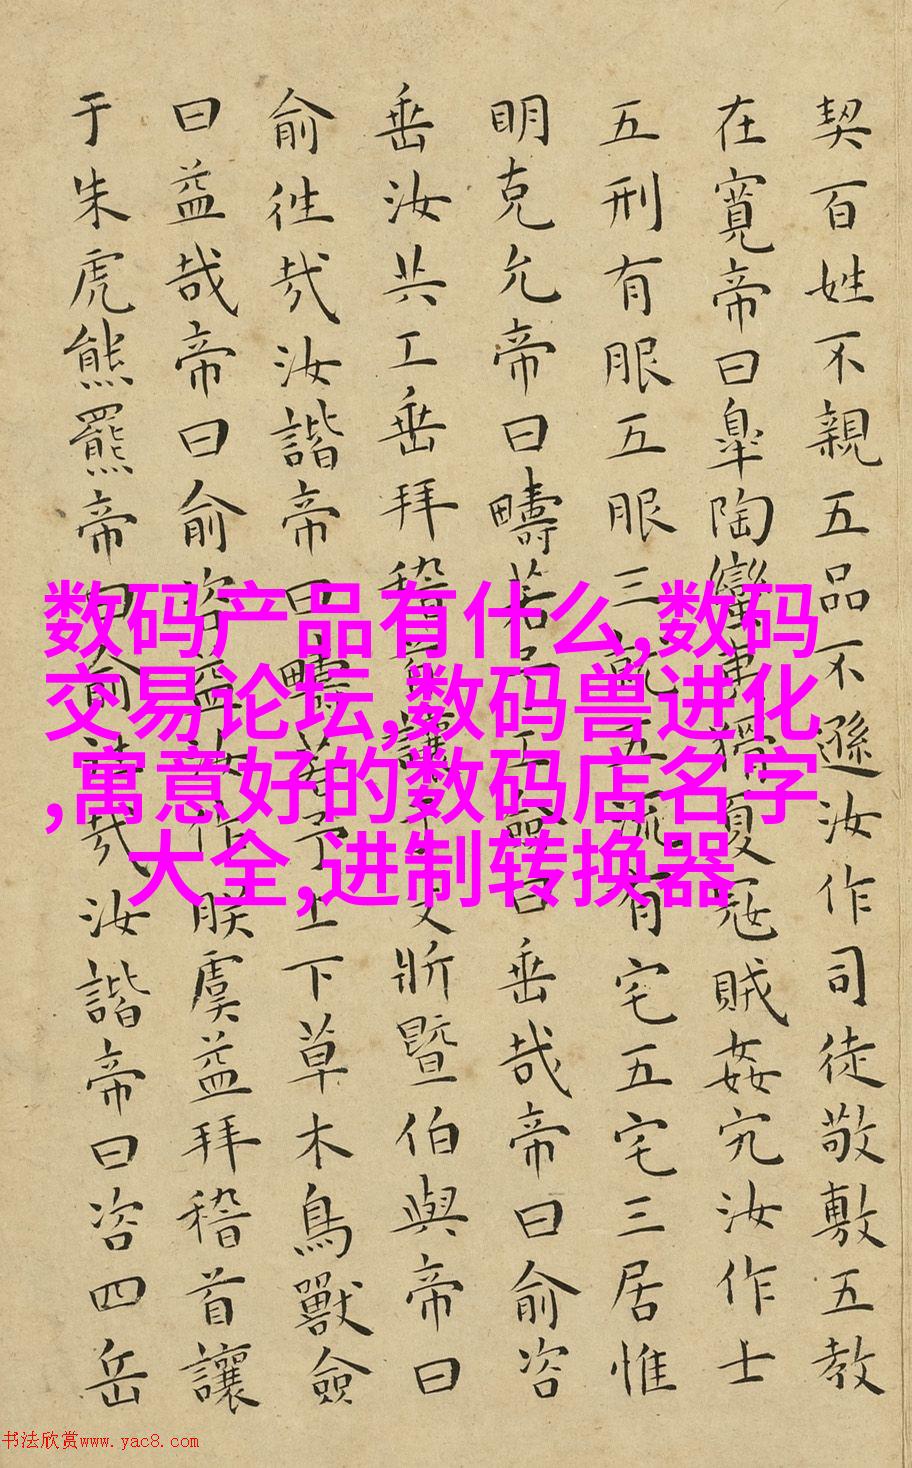 契百姓不親五品不遜汝作司徒敬敷五教
在寬帝曰皐陶蠻夷猾夏冦賊姦宄汝作士
五刑有服五服三就五流有宅五宅三居惟
明克允帝曰疇若予工僉曰垂哉帝曰俞咨
垂汝共工垂拜稽首讓于殳斨暨伯與帝曰
俞徃哉汝諧帝曰疇若予上下草木鳥獸僉
曰益哉帝曰俞咨益汝作朕虞益拜稽首讓
于朱虎熊羆帝曰俞徃哉汝諧帝曰咨四岳
数码产品有什么,数码
交易论坛,数码兽进化
,寓意好的数码店名字
大全,进制转换器
书法欣赏www.yac8.com